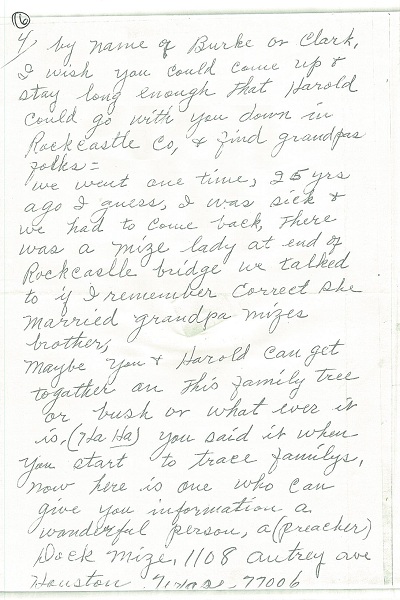 16
4/ by name of Burke or Clark,
I wish you could come up &
stay long enough that Harold
could go with you down in
Rockcastle Co, & find grandpas
folks =
we went one time, 25 yrs
ago I guess, I was sick &
we had to come back, there
was a mize lady at end of
Rockcastle bridge we talked
to if I remember correct she
married grandpa mizes
brother,
maybe you & Harold can get
togather on this family tree
or bush or what ever it
is, (Ha Ha) you said it when
you start to trace familys,
now here is one who can
give you information a
wonderful person, a (preacher)
Dock Mize, 1108 autrey ave
Houston, Texas, 77006